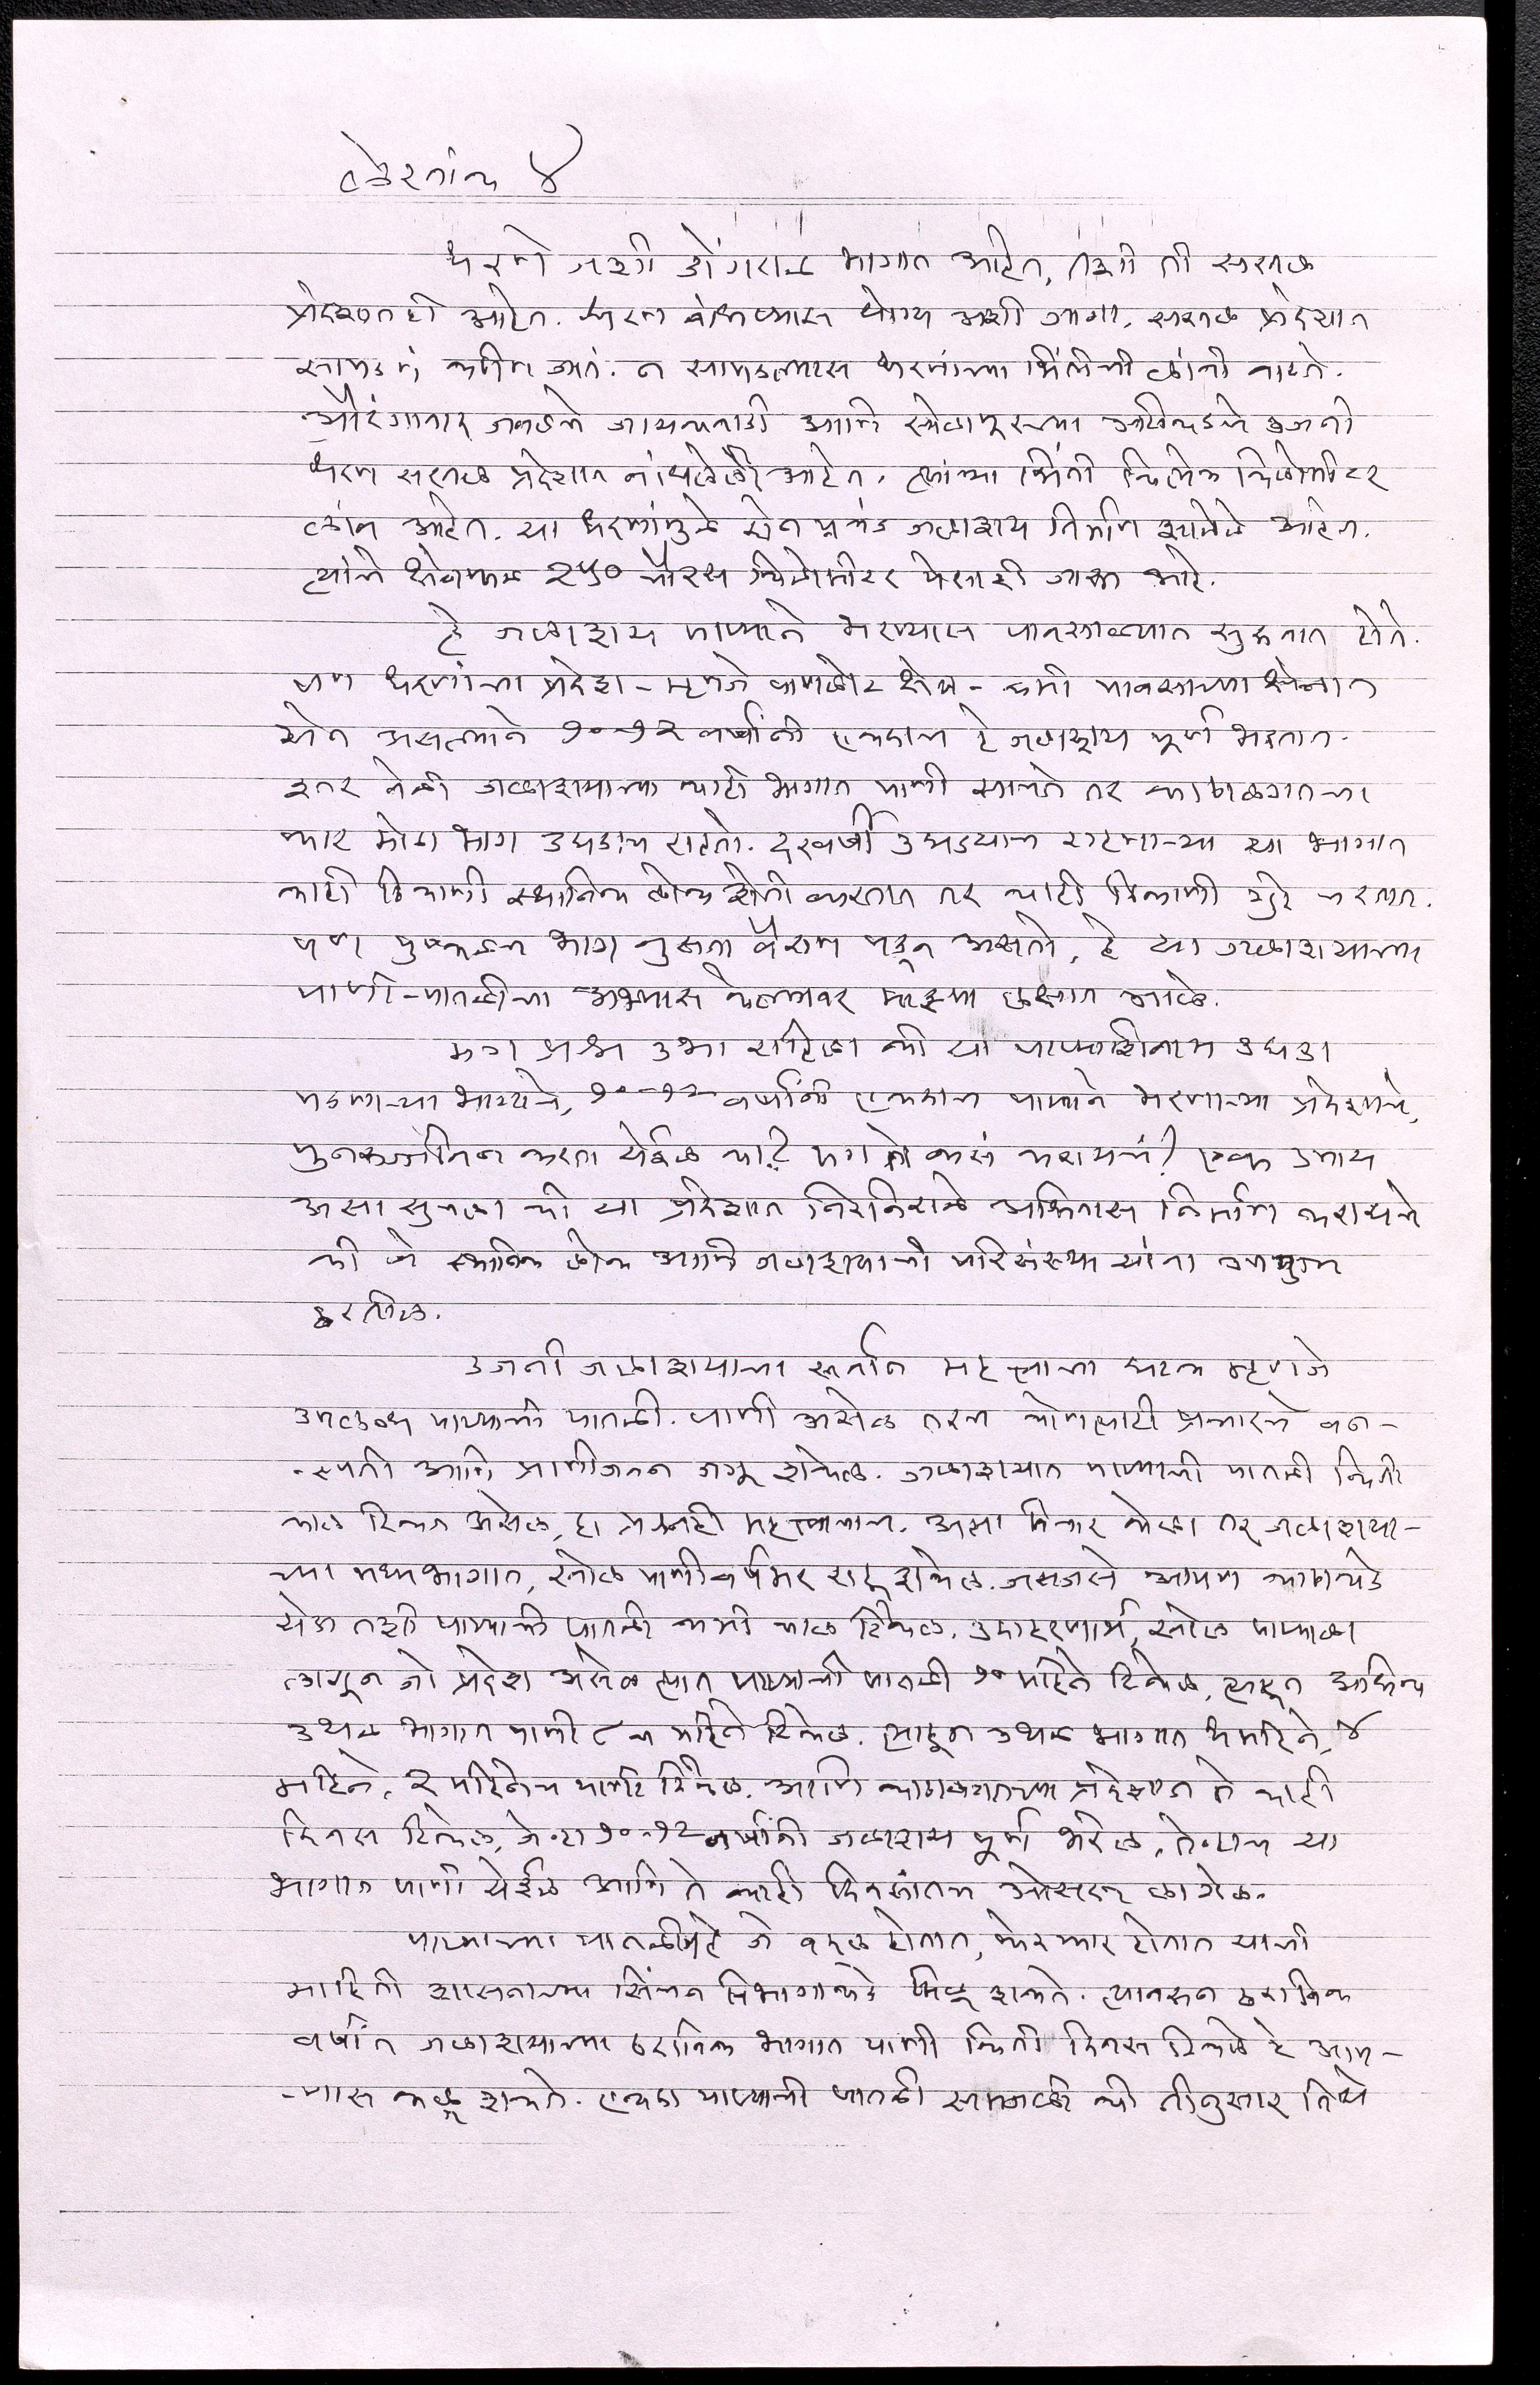 लेखांक ४
धरणे जशी डोंगराळ भागात आहेत, तशी ती सपाट
प्रदेशातही आहेत. धरण बांधण्यास योग्य अशी जागा, सपाट प्रदेशात
सापडणं कठीण जातं. न सापडल्यास धरणाच्या भिंतीची लांबी वाढते.
औरंगाबाद जवळचे जायकवाडी आणि सोलापूरच्या अलीकडचे उजनी
धरण सपाट प्रदेशात बांधलेली आहेत. त्यांच्या भिंती कित्येक किलोमीटर
लांब आहेत. या धरणांमुळे दोन प्रचंड जलाशय निर्माण झालेले आहेत.
त्यांचे क्षेत्रफळ २५० चौरस किलोमीटर पेक्षाही जास्त आहे.
हे जलाशय पाण्याने भरण्यास पावसाळ्यात सुरुवात होते.
पण धरणांचा प्रदेश - म्हणजे पाणलोट क्षेत्र - कमी पावसाच्या क्षेत्रात
येत असल्याने १०-१२ वर्षांनी एकदाच हे जलाशय पूर्ण भरतात.
इतर वेळी जलाशयाच्या काही भागात पाणी साचते तर काठालगतचा
फार मोठा भाग उघडाच राहतो. दरवर्षी उघड्याच राहणाऱ्या या भागात
काही ठिकाणी स्थानिक लोक शेती करतात तर काही ठिकाणी गुरे चरतात.
पण पुष्कळच भाग नुसता वैराण पडून असतो, हे या जलाशयाच्या
पाणी-पातळीचा अभ्यास केल्यावर माझ्या लक्षात आले.
मग प्रश्न उभा राहिला की या पाण्याशिवाय उघडा
पडणाऱ्या भागाचे, १०-१२ वर्षांनी एकदाच पाण्याने भरणाऱ्या प्रदेशाचे,
पुनरुज्जीवन करता येईल का? मग ते कसं करायचं? एक उपाय
असा सुचला की या प्रदेशात निरनिराळे अधिवास निर्माण करायचे
की जे स्थानिक लोक आणि जलाशयाची परिसंस्था यांना उपयुक्त
ठरतील.
उजनी जलाशयाचा सर्वात महत्त्वाचा घटक म्हणजे
उपलब्ध पाण्याची पातळी. पाणी असेल तरच कोणत्याही प्रकारचे वन-
-स्पती आणि प्राणीजीवन जगू शकेल. जलाशयात पाण्याची पातळी किती
काळ टिकून असेल, हा प्रश्नही महत्त्वाचाच. असा विचार केला तर जलाशया-
च्या मध्यभागात, खोल पाणी वर्षभर राहू शकेल. जसजसे आपण काठाकडे
येऊ तशी पाण्याची पातळी कमी काळ टिकेल. उदाहरणार्थ, खोल पाण्याला
लागून जो प्रदेश असेल त्यात पाण्याची पातळी १० महिने टिकेल, त्याहून अधिक
उथळ भागात पाणी ८ च महिने टिकेल. त्याहून उथळ भागात ६ महिने, ४
महिने, २ महिनेच पाणी टिकेल. आणि काठालगतच्या प्रदेशात ते काही
दिवस टिकेल, जेव्हा १०-१२ वर्षांनी जलाशय पूर्ण भरेल, तेव्हाच या
भागात पाणी येईल आणि ते काही दिवसांतच ओसरू लागेल.
पाण्याच्या पातळीमध्ये जे बदल होतात, फेरफार होतात याची
माहिती शासनाच्या सिंचन विभागाकडे मिळू शकते. त्यावरून ठराविक
वर्षात जलाशयाच्या ठराविक भागात पाणी किती दिवस टिकेल हे आप-
-णास कळू शकते. एकदा पाण्याची पातळी समजली की तीनुसार तिथे